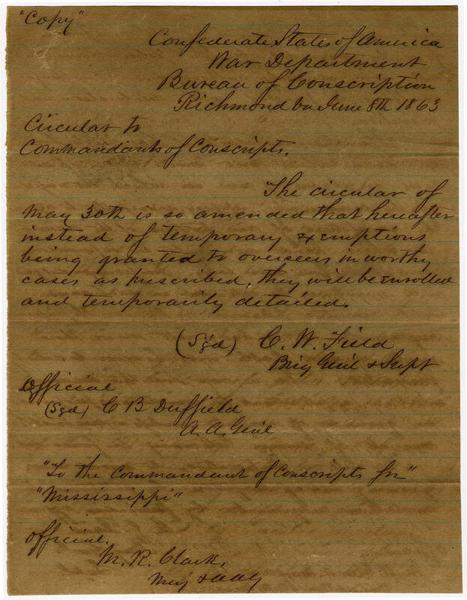 "Copy"
Confederate States of America
War Department
Bureau of Conscription
Richmond Va June 8th 1863
Circular to
Commandants of Conscripts.
The circular of
May 30th is so amended that hereafter
instead of temporary exemptions
being granted to overseers in worthy
cases as prescribed, they will be enrolled
and temporarily detailed.
(Sgd) C. W. Field
Brig Genl & Supt
Official
(Sgd) C B Duffield
A. A. Genl
"To the Commandant of Conscripts for"
"Mississippi"
Official.
M. R. Clark,
Maj & AAG